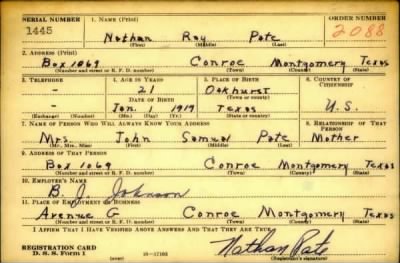 SERIAL NUMBER 1. NAME (Print) ORDER NUMBER
1445 Nathan Roy Pate 2088
(First) (Middle) (Last)
2. ADDRESS (Print)
Box 1069 Conroe Montgomery Texas
(Number and street or R. F. D. number) (Town) (County) (State)
3. TELEPHONE 4. AGE IN YEARS 5. PLACE OF BIRTH 6. COUNTRY OF CITIZENSHIP
- 21 Oakhurst
DATE OF BIRTH (Town or county)
- Jan. 1 1919 Texas U.S.
(Exchange) (Number) (Mo.) (Day) (Yr.) (State or country)
7. NAME OF PERSON WHO WILL ALWAYS KNOW YOUR ADDRESS 8. RELATIONSHIP OF THAT PERSON
Mrs. John Samuel Pate Mother
(Mr., Mrs., Miss) (First) (Middle) (Last)
9. ADDRESS OF THAT PERSON
Box 1069 Conroe Montgomery Texas
(Number and street or R. F. D. number) (Town) (County) (State)
10. EMPLOYER'S NAME
B. J. Johnson
11. PLACE OF EMPLOYMENT OR BUSINESS
Avenue G Conroe Montgomery Texas
(Number and street or R. F. D. number) (Town) (County) (State)
I AFFIRM THAT I HAVE VERIFIED ABOVE ANSWERS AND THAT THEY ARE TRUE.
REGISTRATION CARD
D. S. S. Form 1 16—17105 Nathan Pate
(Registrant's signature)